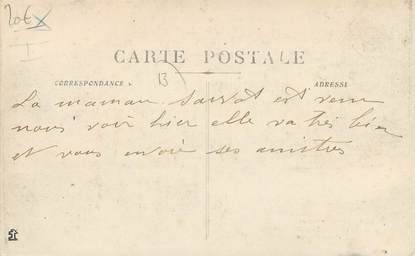 20€ X
I
CARTE POSTALE
CORRESPONDANCE
13
ADRESSE
La maman est venu
nous voir hier elle va très bien
et vous envoie ses amitiés